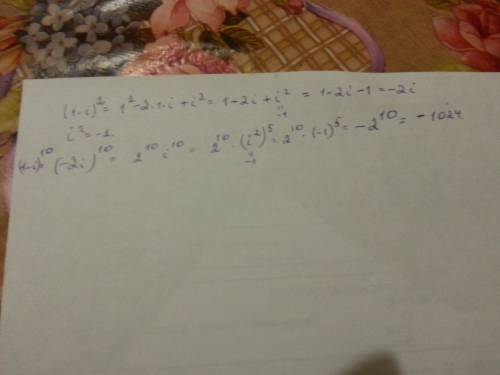 (1-i)² = 1² - 2·1·i + i² = 1 - 2i + i² = 1 - 2i - 1 = -2i
" -1
i² = -1.
(-2i)¹⁰ = 2¹⁰ i¹⁰ = 2¹⁰ · (i²)⁵ = 2¹⁰ · (-1)⁵ = -2¹⁰ = -1024
" -1